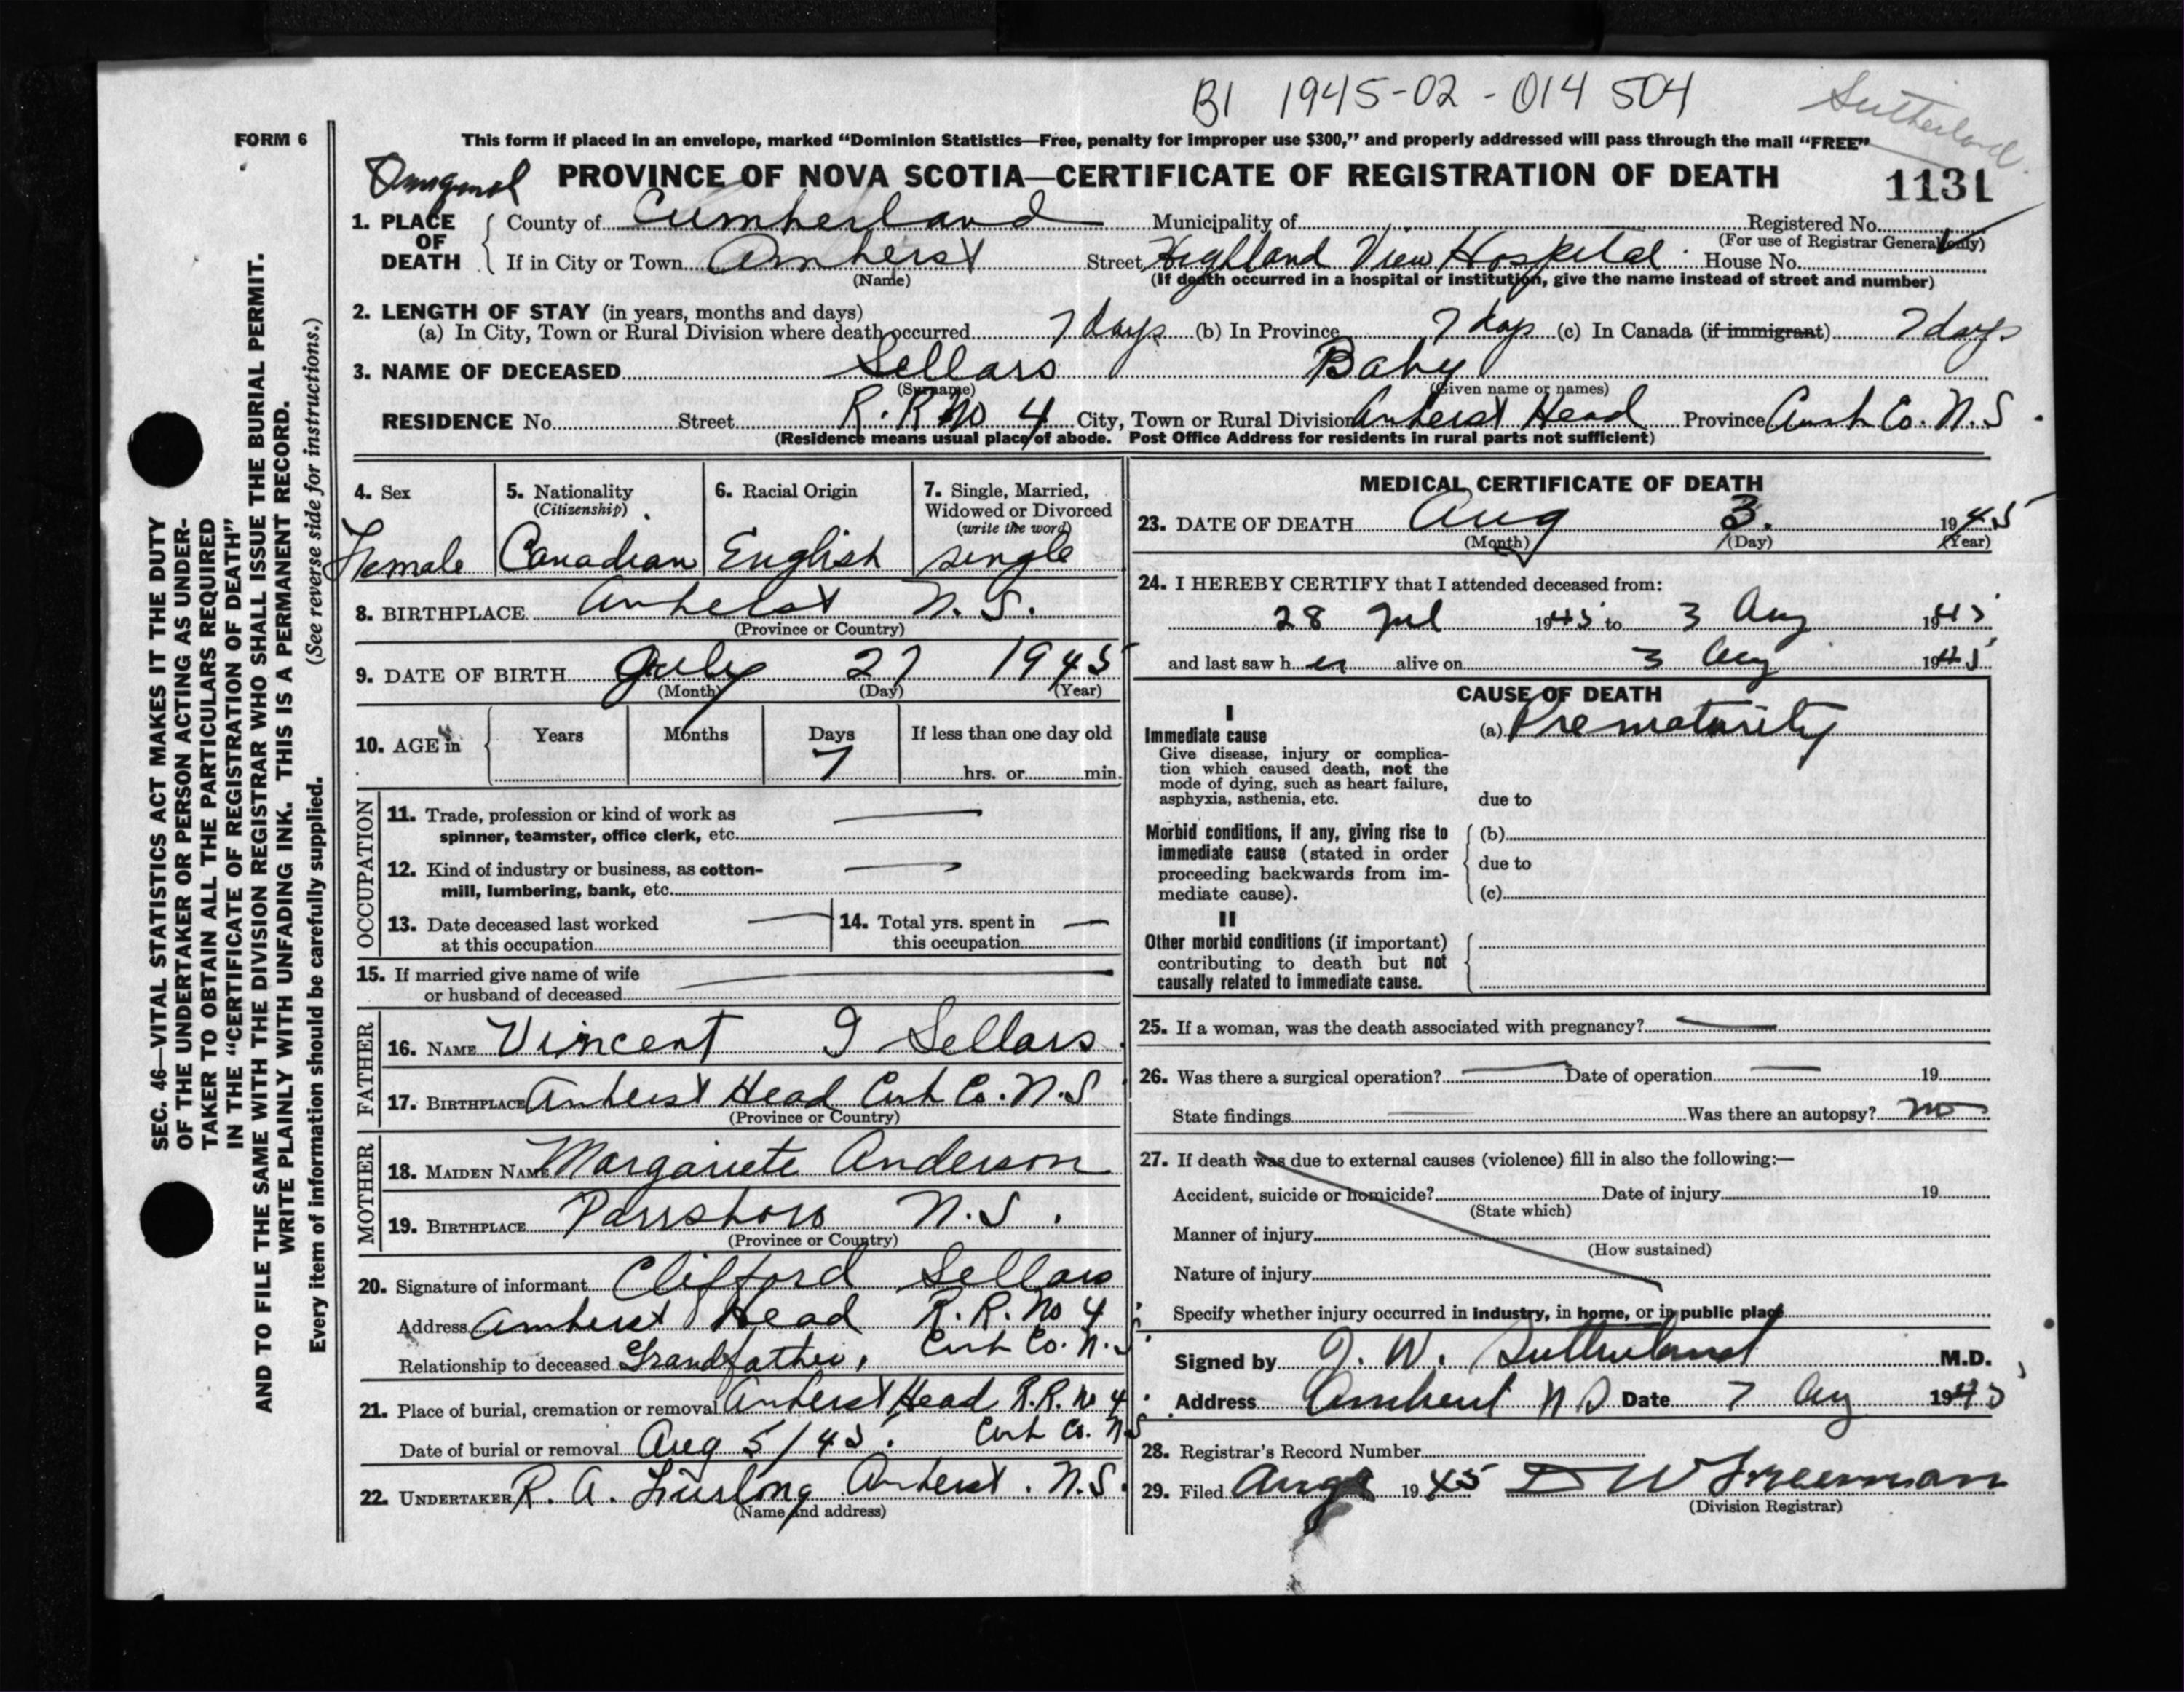 B1 1945-02-014 504
Sutherland
FORM 6
This form if placed in an envelope, marked "Dominion Statistics—Free, penalty for improper use $300," and properly addressed will pass through the mail "FREE"
PROVINCE OF NOVA SCOTIA—CERTIFICATE OF REGISTRATION OF DEATH
1131
1. PLACE OF DEATH
County of Cumberland Municipality of Registered No.
(For use of Registrar General only)
If in City or Town Amherst Street Highland View Hospital House No.
(Name) (If death occurred in a hospital or institution, give the name instead of street and number)
2. LENGTH OF STAY (in years, months and days)
(a) In City, Town or Rural Division where death occurred 7 days (b) In Province 7 days (c) In Canada (if immigrant) 7 days
3. NAME OF DECEASED Sellars Baby
(Surname) (Given name or names)
RESIDENCE No. Street R.R No 4 City, Town or Rural Division Amherst Head Province Cumb Co. N.S.
(Residence means usual place of abode. Post Office Address for residents in rural parts not sufficient)
4. Sex
Female
5. Nationality
(Citizenship)
Canadian
6. Racial Origin
English
7. Single, Married,
Widowed or Divorced
(write the word)
single
8. BIRTHPLACE Amherst N.S.
(Province or Country)
9. DATE OF BIRTH July 27 1945
(Month) (Day) (Year)
10. AGE in Years Months Days If less than one day old
7 hrs. or min.
OCCUPATION
11. Trade, profession or kind of work as
spinner, teamster, office clerk, etc.
12. Kind of industry or business, as cotton-
mill, lumbering, bank, etc.
13. Date deceased last worked
at this occupation
14. Total yrs. spent in
this occupation
15. If married give name of wife
or husband of deceased
FATHER
16. NAME Vincent I Sellars
17. BIRTHPLACE Amherst Head Cumb Co. N.S
(Province or Country)
MOTHER
18. MAIDEN NAME Margariete Anderson
19. BIRTHPLACE Parrsboro N.S.
(Province or Country)
20. Signature of informant Clifford Sellars
Address Amherst Head R.R. No 4
Cumb Co. N.S.
Relationship to deceased Grandfather,
21. Place of burial, cremation or removal Amherst Head R.R. No 4
Cumb Co. N.S
Date of burial or removal Aug 5/45.
22. UNDERTAKER R. A. Furlong Amherst. N.S.
(Name and address)
MEDICAL CERTIFICATE OF DEATH
23. DATE OF DEATH Aug 3. 1945
(Month) (Day) (Year)
24. I HEREBY CERTIFY that I attended deceased from:
28 Jul 1945 to 3 Aug 1945
and last saw her alive on 3 Aug 1945
CAUSE OF DEATH
I
Immediate cause
(a) Prematurity
Give disease, injury or complica-
tion which caused death, not the
mode of dying, such as heart failure,
asphyxia, asthenia, etc.
due to
Morbid conditions, if any, giving rise to
immediate cause (stated in order
proceeding backwards from im-
mediate cause).
(b)
due to
(c)
II
Other morbid conditions (if important)
contributing to death but not
causally related to immediate cause.
25. If a woman, was the death associated with pregnancy?
26. Was there a surgical operation? Date of operation 19
State findings Was there an autopsy? no
27. If death was due to external causes (violence) fill in also the following:—
Accident, suicide or homicide? Date of injury 19
(State which)
Manner of injury
(How sustained)
Nature of injury
Specify whether injury occurred in industry, in home, or in public place
Signed by J. W. Sutherland M.D.
Address Amherst N S Date 7 Aug 1945
28. Registrar's Record Number
29. Filed Aug 1945 D W Freeman
(Division Registrar)
SEC. 46—VITAL STATISTICS ACT MAKES IT THE DUTY
OF THE UNDERTAKER OR PERSON ACTING AS UNDER-
TAKER TO OBTAIN ALL THE PARTICULARS REQUIRED
IN THE "CERTIFICATE OF REGISTRATION OF DEATH"
AND TO FILE THE SAME WITH THE DIVISION REGISTRAR WHO SHALL ISSUE THE BURIAL PERMIT.
WRITE PLAINLY WITH UNFADING INK. THIS IS A PERMANENT RECORD.
Every item of information should be carefully supplied. (See reverse side for instructions.)